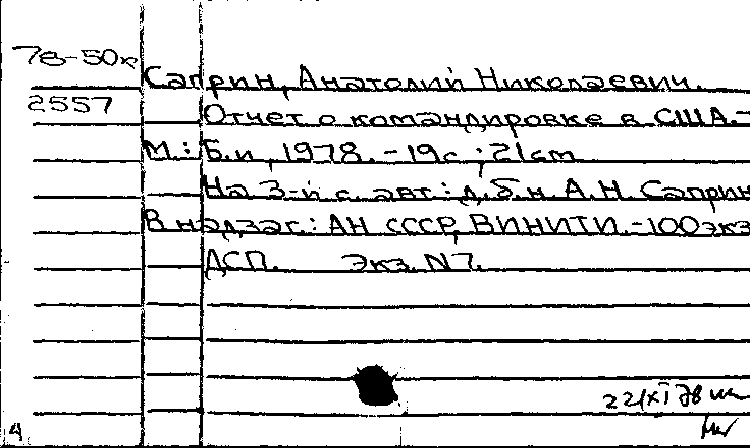 78-50к
Саприн, Анатолий Николаевич.
2557
Отчет о командировке в США.-
М.: Б.и, 1978.-19с.; 21cm
На 3-й с. авт.: д.б.н А.Н. Саприн
В надзаг.: АН СССР, ВИНИТИ.-100экз
ДСП. Экз. N7.
22/XI 78
4